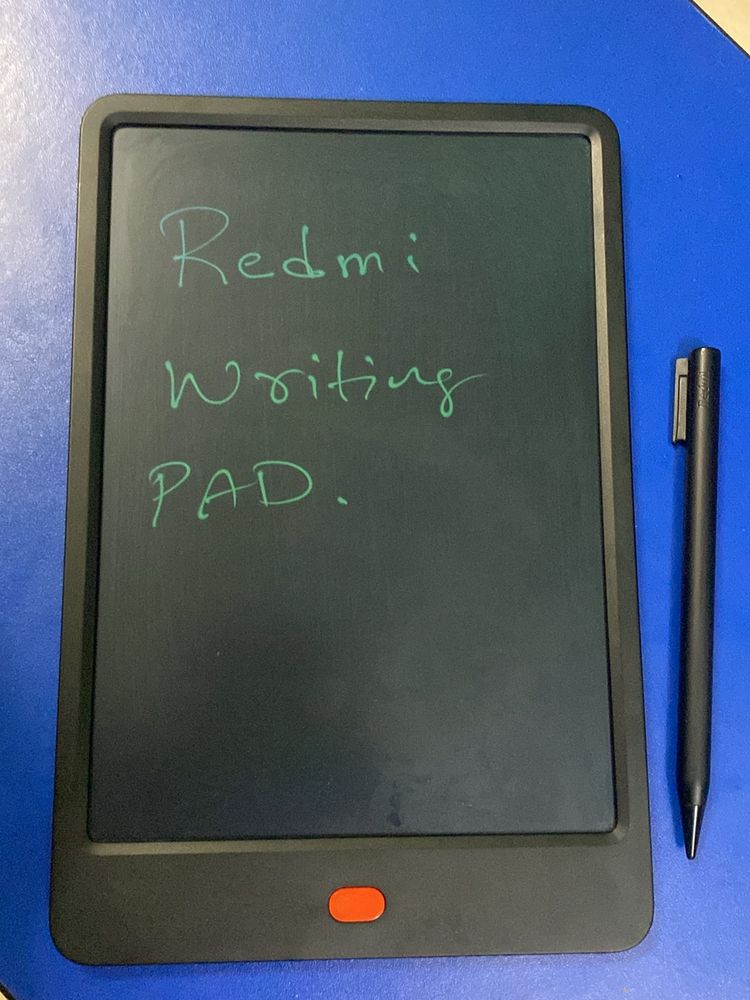 Redmi
Writing
PAD.